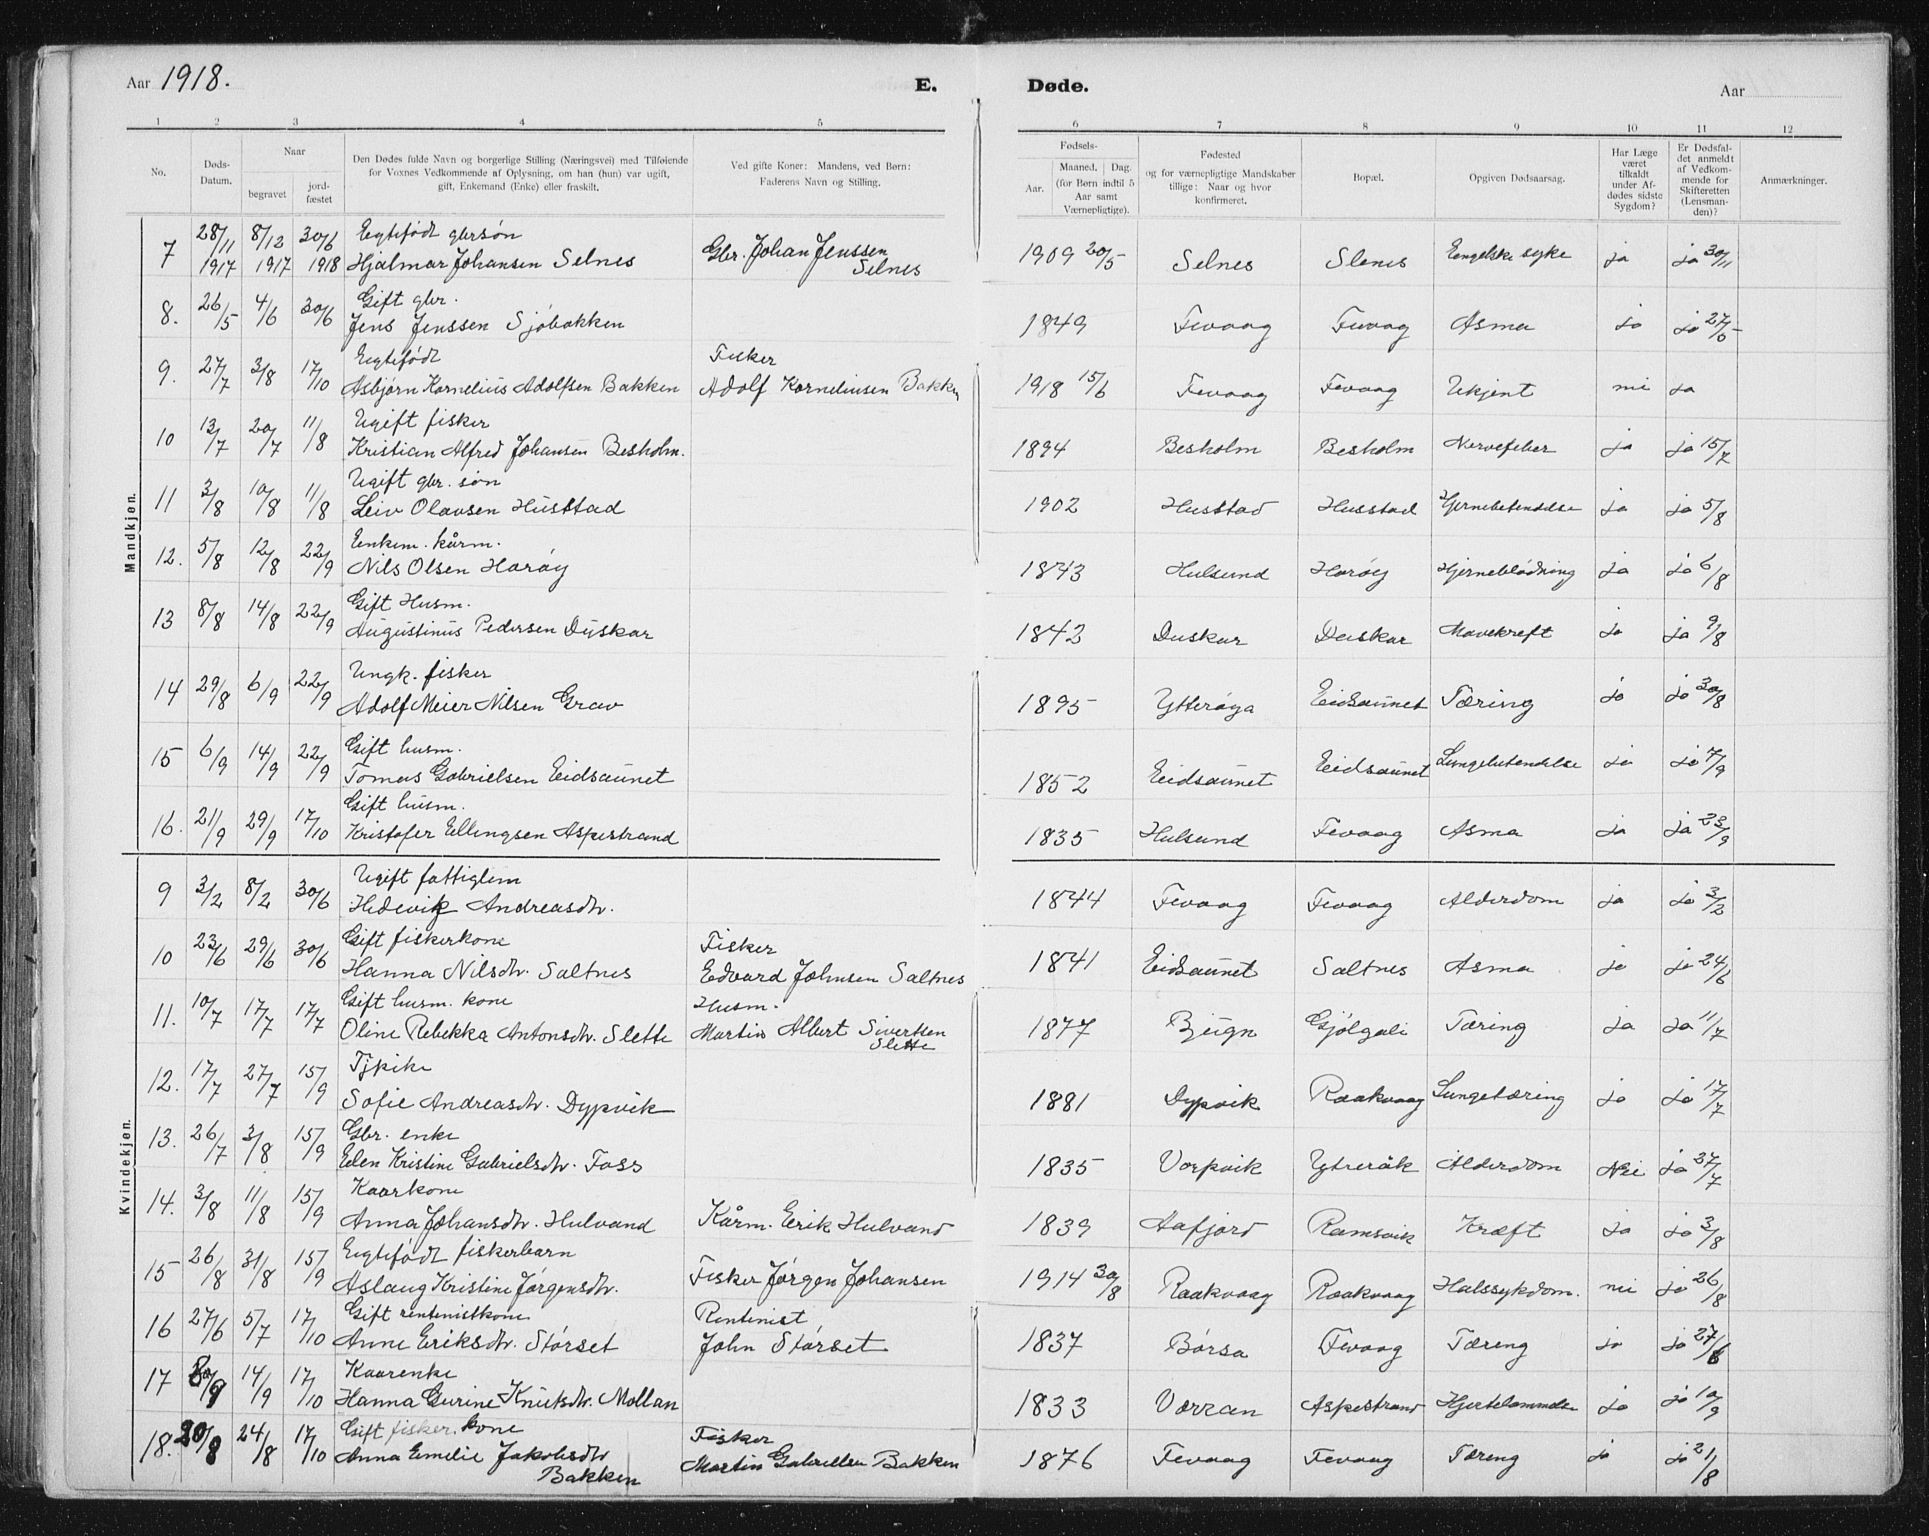 Aar 1918.
E.
Døde.
Aar
1 2 3 4 5 6 7 8 9 10 11 12
No.
Døds-Datum.
Naar
begravet
jord-fæstet
Den Dødes fulde Navn og borgerlige Stilling (Næringsvei) med Tilføiende
for Voxnes Vedkommende af Oplysning, om han (hun) var ugift,
gift, Enkemand (Enke) eller fraskilt.
Ved gifte Koner: Mandens, ved Børn:
Faderens Navn og Stilling.
Fødsels-
Aar.
Maaned. Dag.
(for Børn indtil 5
Aar samt
Værnepligtige).
Fødested
og for værnepligtige Mandskaber
tillige: Naar og hvor
konfirmeret.
Bopæl.
Opgiven Dødsaarsag.
Har Læge
været
tilkaldt
under Af-
dødes sidste
Sygdom?
Er Dødsfal-
det anmeldt
af Vedkom-
mende for
Skifteretten
(Lensman-
den)?
Anmærkninger.
Mandkjøn.
28/11 8/12 30/6 Egtefødt gbrsøn
7 1917 1917 1918 Hjalmar Johansen Selnes Gbr. Johan Jenssen Selnes 1909 20/5 Selnes Slenes Engelske syke ja ja 30/11
Gift gbr.
8. 26/5 4/6 30/6 Jens Jenssen Sjøbakken 1849 Fevaag Fevaag Asma ja ja 27/5
Egtefødt Fisker
9. 27/7 3/8 17/10 Asbjørn Kornelius Adolfsen Bakken Adolf Korneliusen Bakken 1918 15/6 Fevaag Fevaag Ukjent nei ja
Ugift fisker
10 13/7 20/7 11/8 Kristian Alfred Johansen Besholm. 1894 Besholm Besholm Nervefeber ja ja 15/7
Ugift gbr. søn
11 3/8 10/8 11/8 Leiv Olavsen Husstad 1902 Husstad Husstad Hjernebetendelse ja ja 5/8
Enkem. kårm.
12. 5/8 12/8 22/9 Nils Olsen Harøy 1843 Hulsund Harøy Hjerneblødning ja ja 6/8
Gift Husm.
13 8/8 14/8 22/9 Augustinus Pedersen Duskar 1842 Duskar Duskar Mavekreft ja ja 9/8
Ungk. fisker
14 29/8 6/9 22/9 Adolf Meier Nilsen Grav 1895 Ytterøya Eidsaunet Tæring ja ja 30/8
Gift husm.
15 6/9 14/9 22/9 Tomas Gabrielsen Eidsaunet 1852 Eidsaunet Eidsaunet Lungebetendelse ja ja 7/9
Gift husm.
16. 21/9 29/9 17/10 Kristofer Ellingsen Aspestrand 1835 Hulsund Fevaag Asma ja ja 23/9
Kvindekjøn.
Ugift fattiglem
9 3/2 8/2 30/6 Hedevik Andreasdtr. 1844 Fevaag Fevaag Alderdom ja ja 3/2
Gift fiskerkone Fisker
10 23/6 29/6 30/6 Hanna Nilsdtr. Saltnes Edvard Johnsen Saltnes 1841 Eidsaunet Saltnes Asma ja ja 24/6
Gift husm. kone Husm.
11. 10/7 17/7 17/7 Oline Rebekka Antonsdtr. Slette Martin Albert Sivertsen Slette 1877 Bjugn Gjølgali Tæring ja ja 11/7
Tjpike
12. 17/7 27/7 15/9 Sofie Andreasdtr. Dypvik 1881 Dypvik Raakvaag Lungetæring ja ja 17/7
Gbr. enke
13. 26/7 3/8 15/9 Elen Kristine Gabrielsdtr. Foss 1835 Vorpvik Ytreråk Alderdom Nei ja 27/7
Kaarkone
14. 3/8 11/8 15/9 Anna Johansdtr. Hulvand Kårm. Erik Hulvand 1839 Aafjord Ramsvik Kræft ja ja 3/8
Egtefødt fiskerbarn
15 26/8 31/8 15/9 Aslaug Kristine Jørgensdtr. Fisker Jørgen Johansen 1914 30/8 Raakvaag Raakvaag Halssykdom. nei ja 26/8
Gift rentenistkone Rentenist
16 27/6 5/7 17/10 Anne Eriksdtr. Størset John Størset 1837 Børsa Fevaag Tæreng ja ja 27/6
Kaarenke
17 14/9 17/10 Hanna Gurine Knutsdtr. Mollan 1833 Værran Aspestrand Hjertelammelse ja ja 10/9
Gift fisker. kone Fisker
18. 20/8 24/8 17/10 Anna Emelie Jakobsdtr Bakken Martin Gabrielsen Bakken 1876 Fevaag Fevaag Tæreng ja ja 21/8